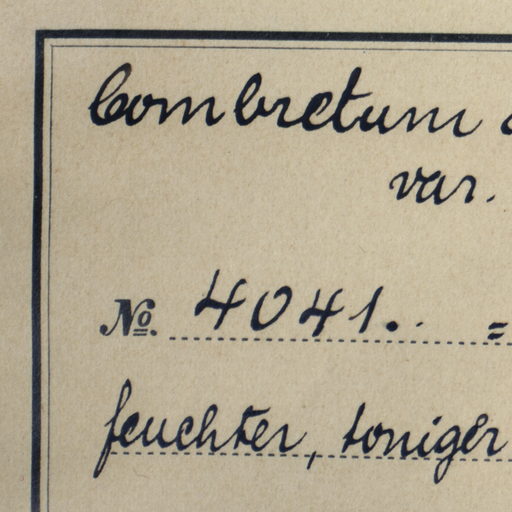 Combretum
var.
No. 4041. =
feuchter, toniger